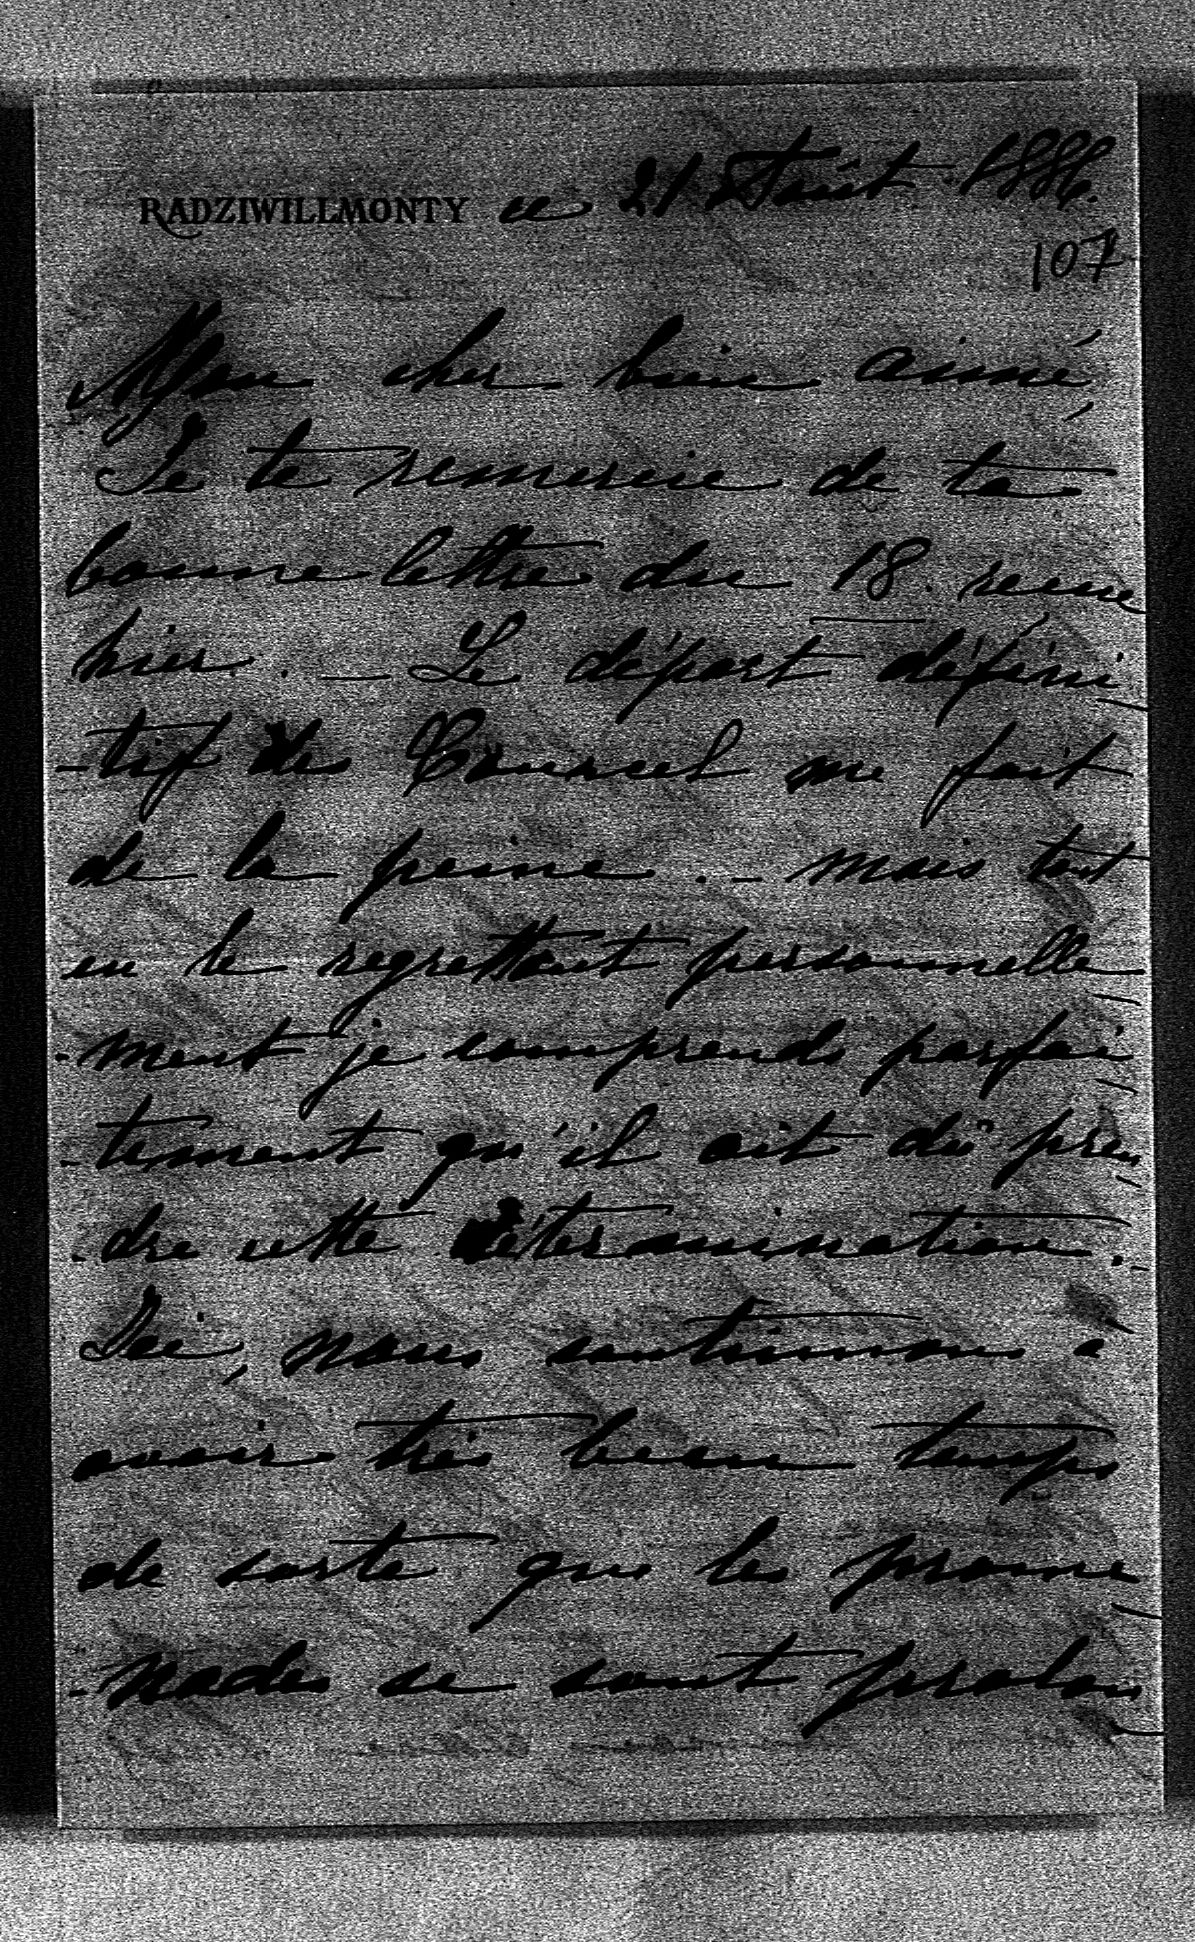 RADZIWILLMONTY ce 21 Août 1886.
107
Mon cher bien aimé
Je te remercie de ta
bonne lettre du 18. reçue
hier. — Le départ défini
-tif de Courcel me fait
de la peine. - mais tout
en le regrettant personnelle-
-ment je comprends parfai-
-tement qu'il ait dû pren-
-dre cette détermination. -
Ici, nous continuons à
avoir très beau temps
de sorte que les prome-
-nades se sont prolon-